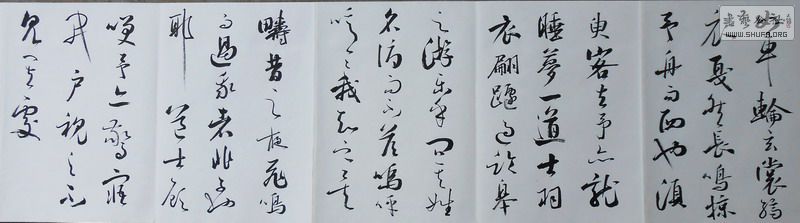 車輪玄裳縞
衣戛然長鳴掠
予舟而西也須
臾客去予亦就
睡夢一道士羽
衣翩躚過臨皋
之游樂乎問其姓
名俯而不答嗚呼
噫嘻我知之矣
疇昔之夜飛鳴
而過我者非子也
耶道士顧
笑予亦驚寤
開戶視之不
見其處
WWW.SHUFA.ORG